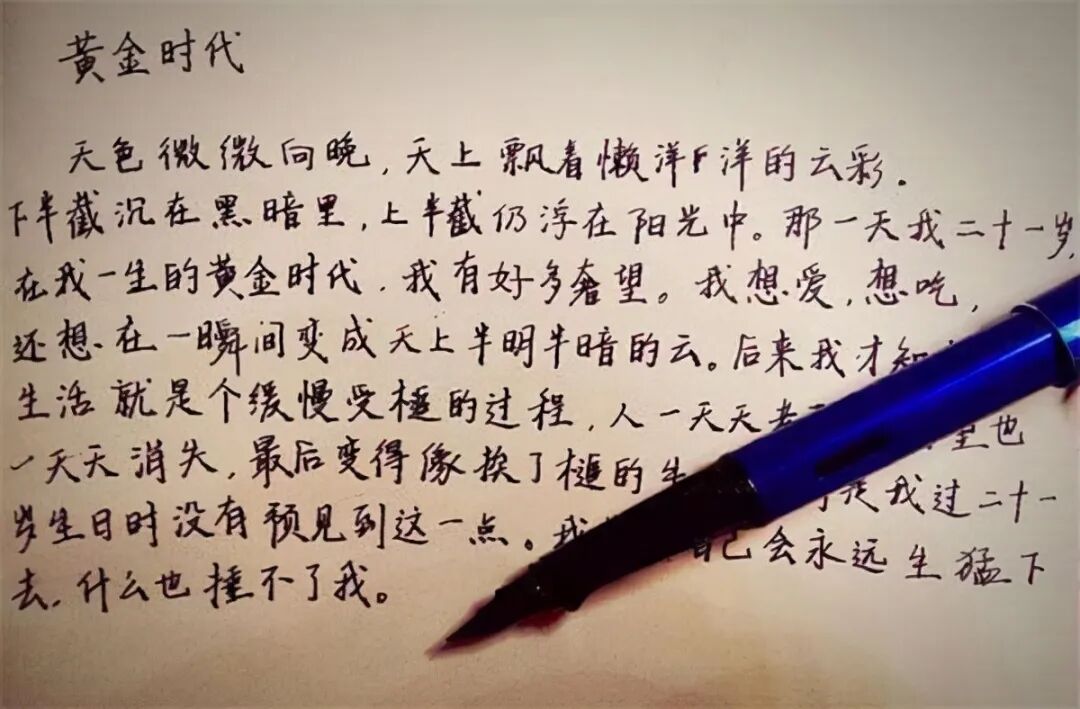 黄金时代
天色微微向晚，天上飘着懒洋洋的云彩．
下半截沉在黑暗里，上半截仍浮在阳光中。那一天我二十一岁，
在我一生的黄金时代．我有好多奢望。我想爱，想吃，
还想在一瞬间变成天上半明半暗的云。后来我才知
生活就是个缓慢受槌的过程，人一天天老 也
一天天消失，最后变得像挨了槌的牛 我过二十一
岁生日时没有预见到这一点。我 自己会永远生猛下
去．什么也捶不了我。